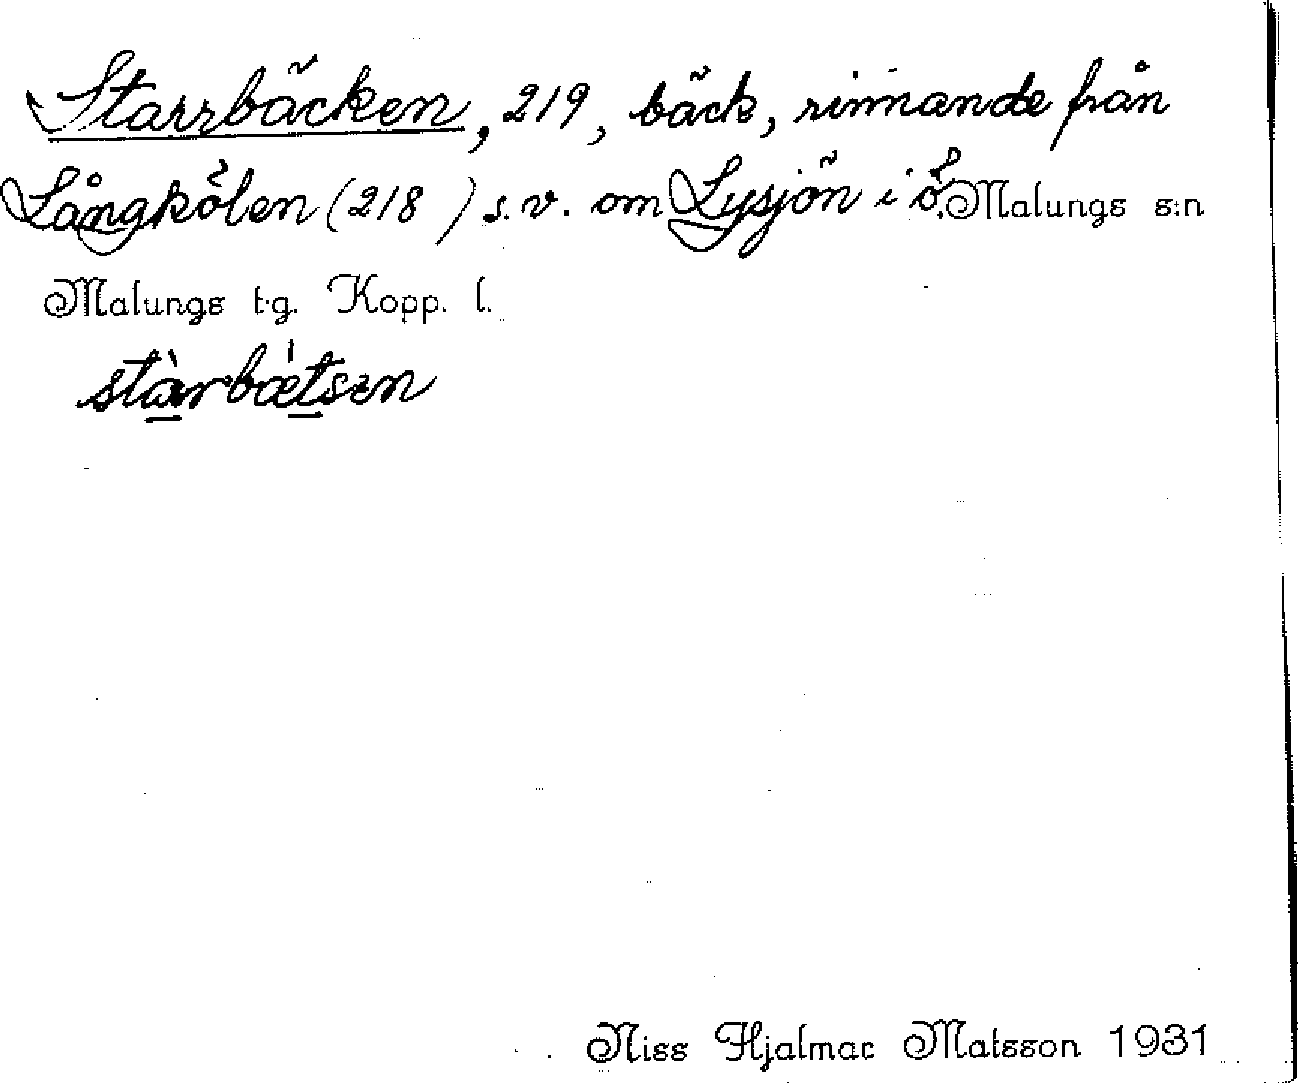 Starrbäcken, 219, bäck, rinnande från
Långkölen (218 ) s.v. om Lysjön i ö. Malungs s:n
Malungs t.g. Kopp. l.
stàrbǽtsen
Niss Hjalmar Matsson 1931